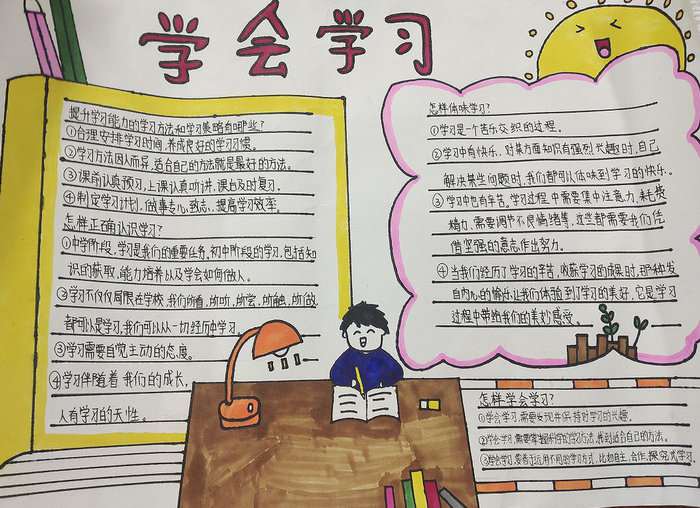 学会学习
提升学习能力的学习方法和学习策略有哪些?
①合理安排学习时间,养成良好的学习习惯。
②学习方法因人而异,适合自己的方法就是最好的方法。
③课前认真预习,上课认真听讲,课后及时复习。
④制定学习计划,做事专心、致志,提高学习效率。
怎样正确认识学习?
①中学阶段,学习是我们的重要任务。初中阶段的学习,包括知
识的获取,能力培养以及学会如何做人。
②学习不仅仅局限在学校,我们所看、所听、所尝、所触、所做
都可以是学习,我们可以从一切经历中学习。
③学习需要自觉、主动的态度。
④学习伴随着我们的成长,
人有学习的天性。
怎样体味学习?
①学习是一个苦乐交织的过程。
②学习中有快乐,对某方面知识有强烈兴趣时,自己
解决某些问题时,我们都可以体味到学习的快乐。
③学习中也有辛苦。学习过程中需要集中注意力,耗费
精力,需要调节不良情绪等,这些都需要我们凭
借坚强的意志作出努力。
④当我们经历了学习的辛苦,收获学习的成果时,那种发
自内心的愉悦让我们体验到了学习的美好,它是学习
过程中带给我们的美妙感受。
怎样学会学习?
①学会学习,需要发现并保持对学习的兴趣。
②学会学习,需要掌握科学的学习方法,找到适合自己的方法。
③学会学习,要善于运用不同的学习方式,比如自主、合作、探究式学习。